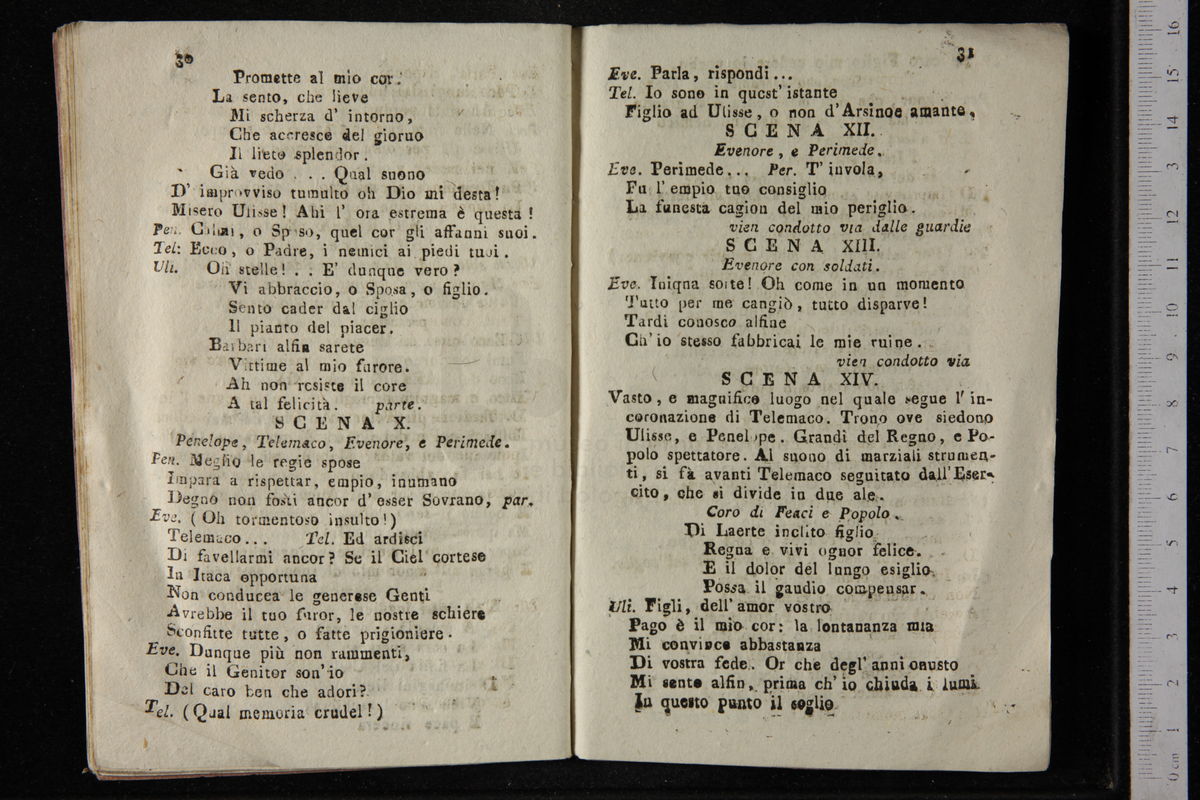 30
Promette al mio cor.
La sento, che lieve
Mi scherza d' intorno,
Che accresce del giorno
Il lieto splendor.
Già vedo . . . Qual suono
D' improvviso tumulto oh Dio mi desta!
Misero Ulisse! Ahi l' ora estrema è questa!
Pen. Calma, o Sposo, quel cor gli affanni suoi.
Tel: Ecco, o Padre, i nemici ai piedi tuoi.
Uli. Oh stelle! . . E' dunque vero?
Vi abbraccio, o Sposa, o figlio.
Sento cader dal ciglio
Il pianto del piacer.
Barbari alfin sarete
Vittime al mio furore.
Ah non resiste il core
A tal felicità. parte.
SCENA X.
Penelope, Telemaco, Evenore, e Perimede.
Pen. Meglio le regie spose
Impara a rispettar, empio, inumano
Degno non fosti ancor d' esser Sovrano, par.
Eve. (Oh tormentoso insulto!)
Telemaco... Tel. Ed ardisci
Di favellarmi ancor? Se il Ciel cortese
In Itaca opportuna
Non conducea le generose Genti
Avrebbe il tuo furor, le nostre schiere
Sconfitte tutte, o fatte prigioniere.
Eve. Dunque più non rammenti,
Che il Genitor son' io
Del caro ben che adori?
Tel. (Qual memoria crudel!)
31
Eve. Parla, rispondi...
Tel. Io sono in quest' istante
Figlio ad Ulisse, o non d' Arsinoe amante,
SCENA XII.
Evenore, e Perimede.
Eve. Perimede... Per. T' invola,
Fu l' empio tuo consiglio
La funesta cagion del mio periglio.
vien condotto via dalle guardie
SCENA XIII.
Evenore con soldati.
Eve. Iniqna sorte! Oh come in un momento
Tutto per me cangiò, tutto disparve!
Tardi conosco alfine
Ch' io stesso fabbricai le mie ruine.
vien condotto via
SCENA XIV.
Vasto, e magnifico luogo nel quale segue l' in-
coronazione di Telemaco. Trono ove siedono
Ulisse, e Penelope. Grandi del Regno, e Po-
polo spettatore. Al suono di marziali strumen-
ti, si fà avanti Telemaco seguitato dall' Eser-
cito, che si divide in due ale.
Coro di Feaci e Popolo.
Di Laerte inclito figlio
Regna e vivi ognor felice.
E il dolor del lungo esiglio
Possa il gaudio compensar.
Uli. Figli, dell' amor vostro
Pago è il mio cor: la lontananza mia
Mi convince abbastanza
Di vostra fede. Or che degl' anni onusto
Mi sento alfin, prima ch' io chiuda i lumi
In questo punto il soglio
0 cm 1 2 3 4 5 6 7 8 9 10 11 12 13 14 15 16